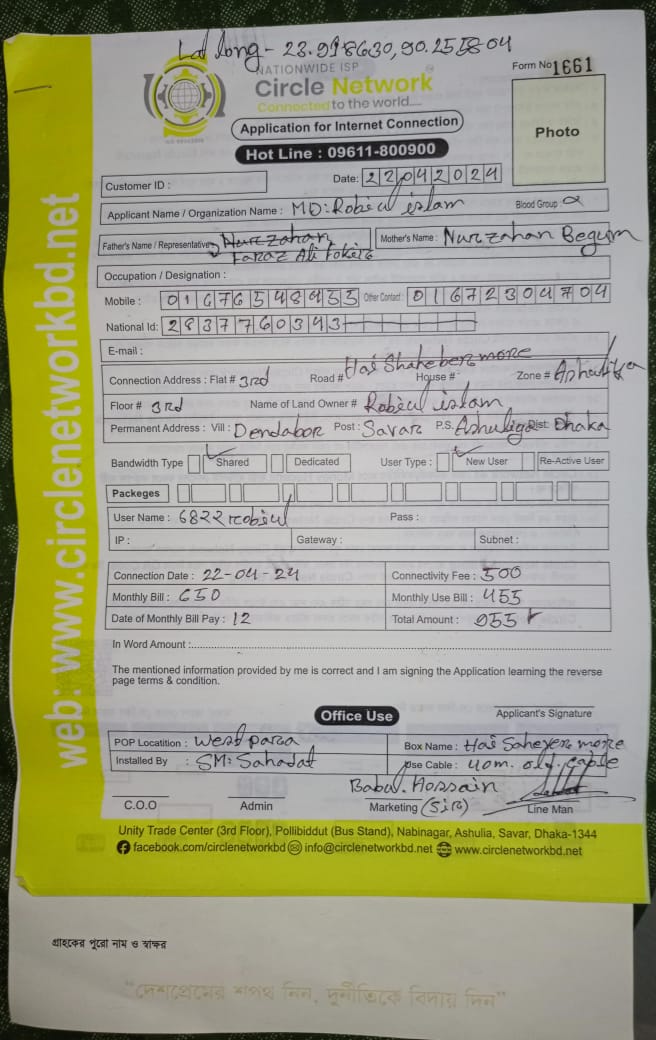 Lat long - 23.998630, 90.255804
NATIONWIDE ISP
Form No 1661
Circle Network
Connected to the world.....
Application for Internet Connection
Photo
Hot Line : 09611-800900
Customer ID :
Date: 22042024
Applicant Name / Organization Name : MD: Robiul islam Blood Group :
Father's Name / Representative Nurzahan Mother's Name : Nurzahan Begum
Faraz Ali Fokir
Occupation / Designation :
Mobile : 01676548933 Other Contact : 01672304704
National Id: 2837760343
E-mail :
Connection Address : Flat # 3rd Road # Hai Shaheber more House # Zone # Ashulia
Floor # 3rd Name of Land Owner # Robiul islam
Permanent Address : Vill : Dendabor Post : Savar P.S. Ashulia Dist: Dhaka
Bandwidth Type Shared Dedicated User Type : New User Re-Active User
Packeges
User Name : 6822robiul Pass :
IP : Gateway : Subnet :
Connection Date : 22-04-24 Connectivity Fee : 500
Monthly Bill : 650 Monthly Use Bill : 455
Date of Monthly Bill Pay : 12 Total Amount : 955
In Word Amount :
The mentioned information provided by me is correct and I am signing the Application learning the reverse
page terms & condition.
Office Use
Applicant's Signature
POP Locatition : West para Box Name : Hai Saheyer more
Installed By : SM: Sahadat Use Cable : 40m. old. cable
Babul Hossain
C.O.O Admin Marketing (Sir) Line Man
Unity Trade Center (3rd Floor), Pollibiddut (Bus Stand), Nabinagar, Ashulia, Savar, Dhaka-1344
facebook.com/circlenetworkbd info@circlenetworkbd.net www.circlenetworkbd.net
web: www.circlenetworkbd.net
গ্রাহকের পুরো নাম ও স্বাক্ষর
"দেশপ্রেমের শপথ নিন, দুর্নীতিকে বিদায় দিন"